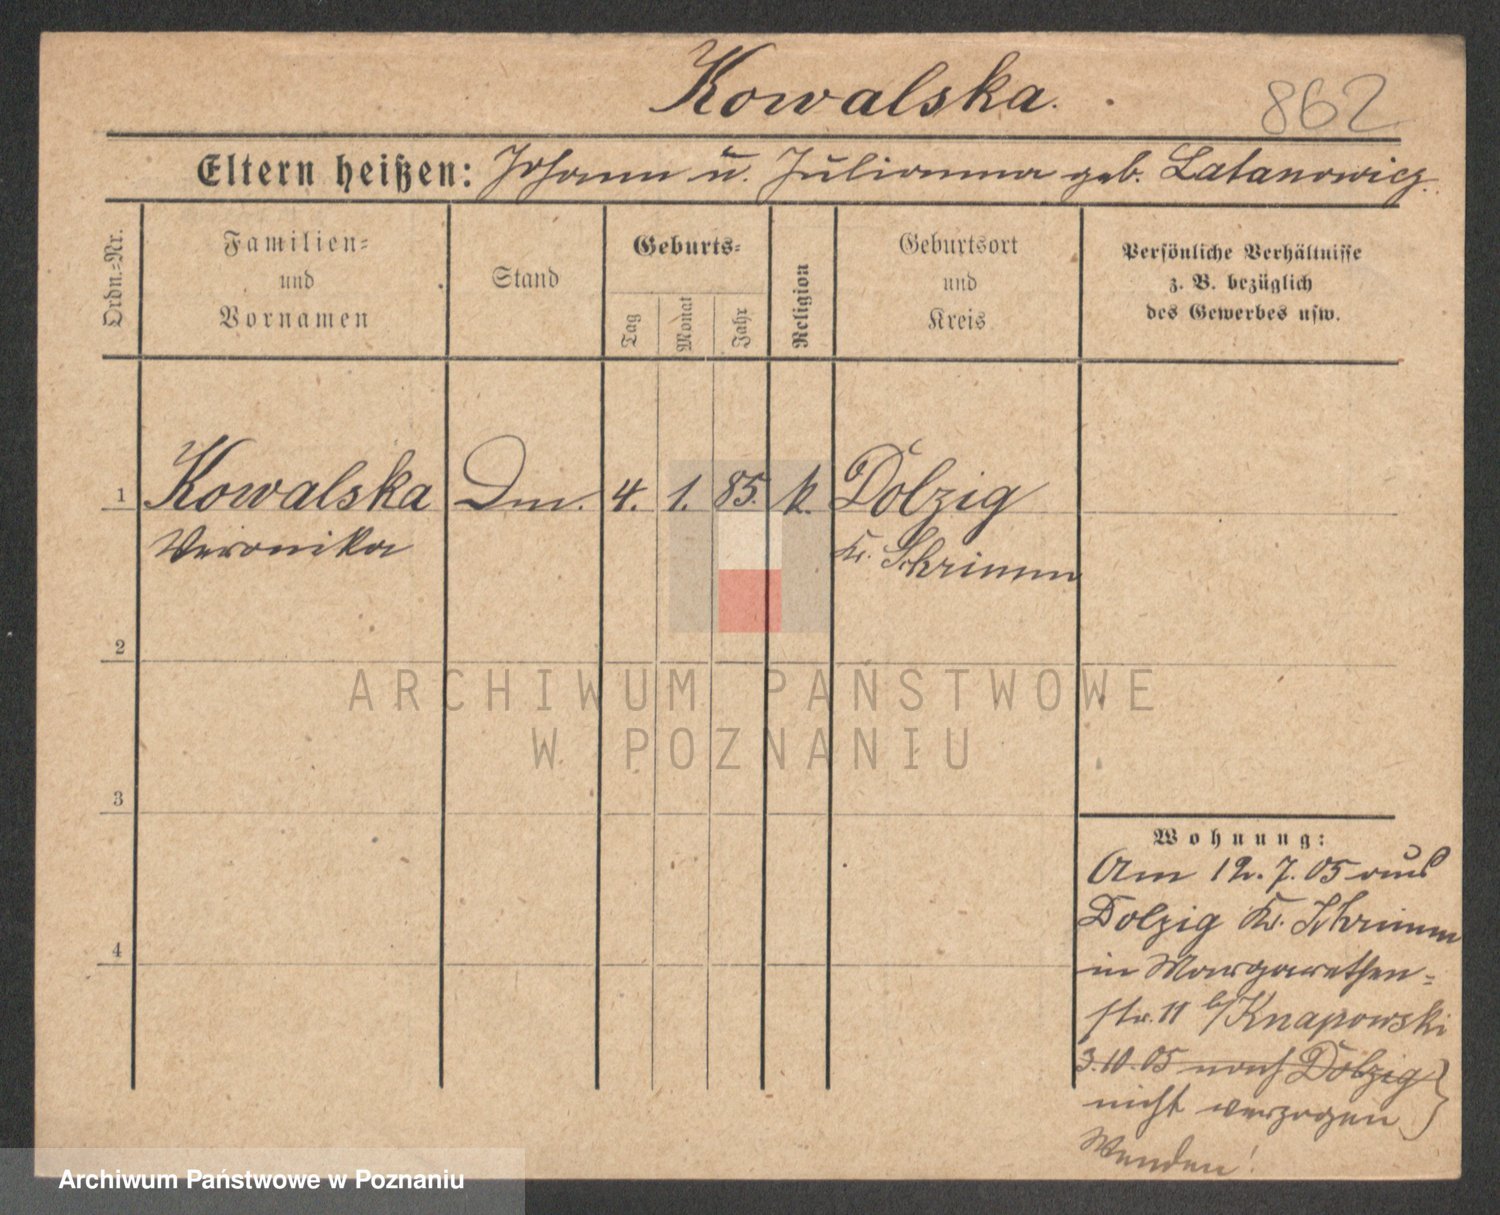 Kowalska. 862
Eltern heißen: Johann u. Julianna geb. Latanowicz.
Ordn.=Nr.
Familien=
und
Vornamen
Stand
Geburts=
Tag
Monat
Jahr
Religion
Geburtsort
und
Kreis
Persönliche Verhältnisse
z. B. bezüglich
des Gewerbes usw.
1 Kowalska Dm. 4. 1. 85. k. Dolzig
Veronika Kr. Schrimm
2
3
4
Wohnung:
Am 12. 7. 05 aus
Dolzig Kr. Schrimm
in Margarethen=
str. 11 b/Knapowski
3.10.05 nach Dolzig
nicht verzogen
Wenden!
ARCHIWUM PAŃSTWOWE
W POZNANIU
Archiwum Państwowe w Poznaniu